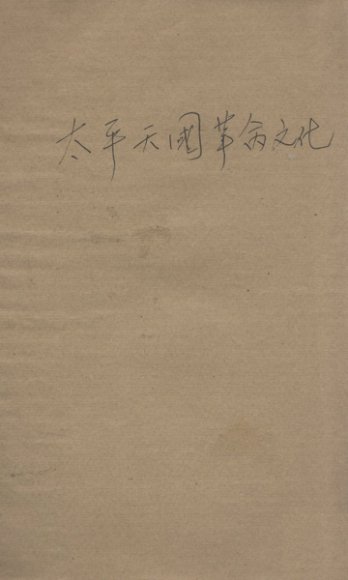 太平天國革命文化